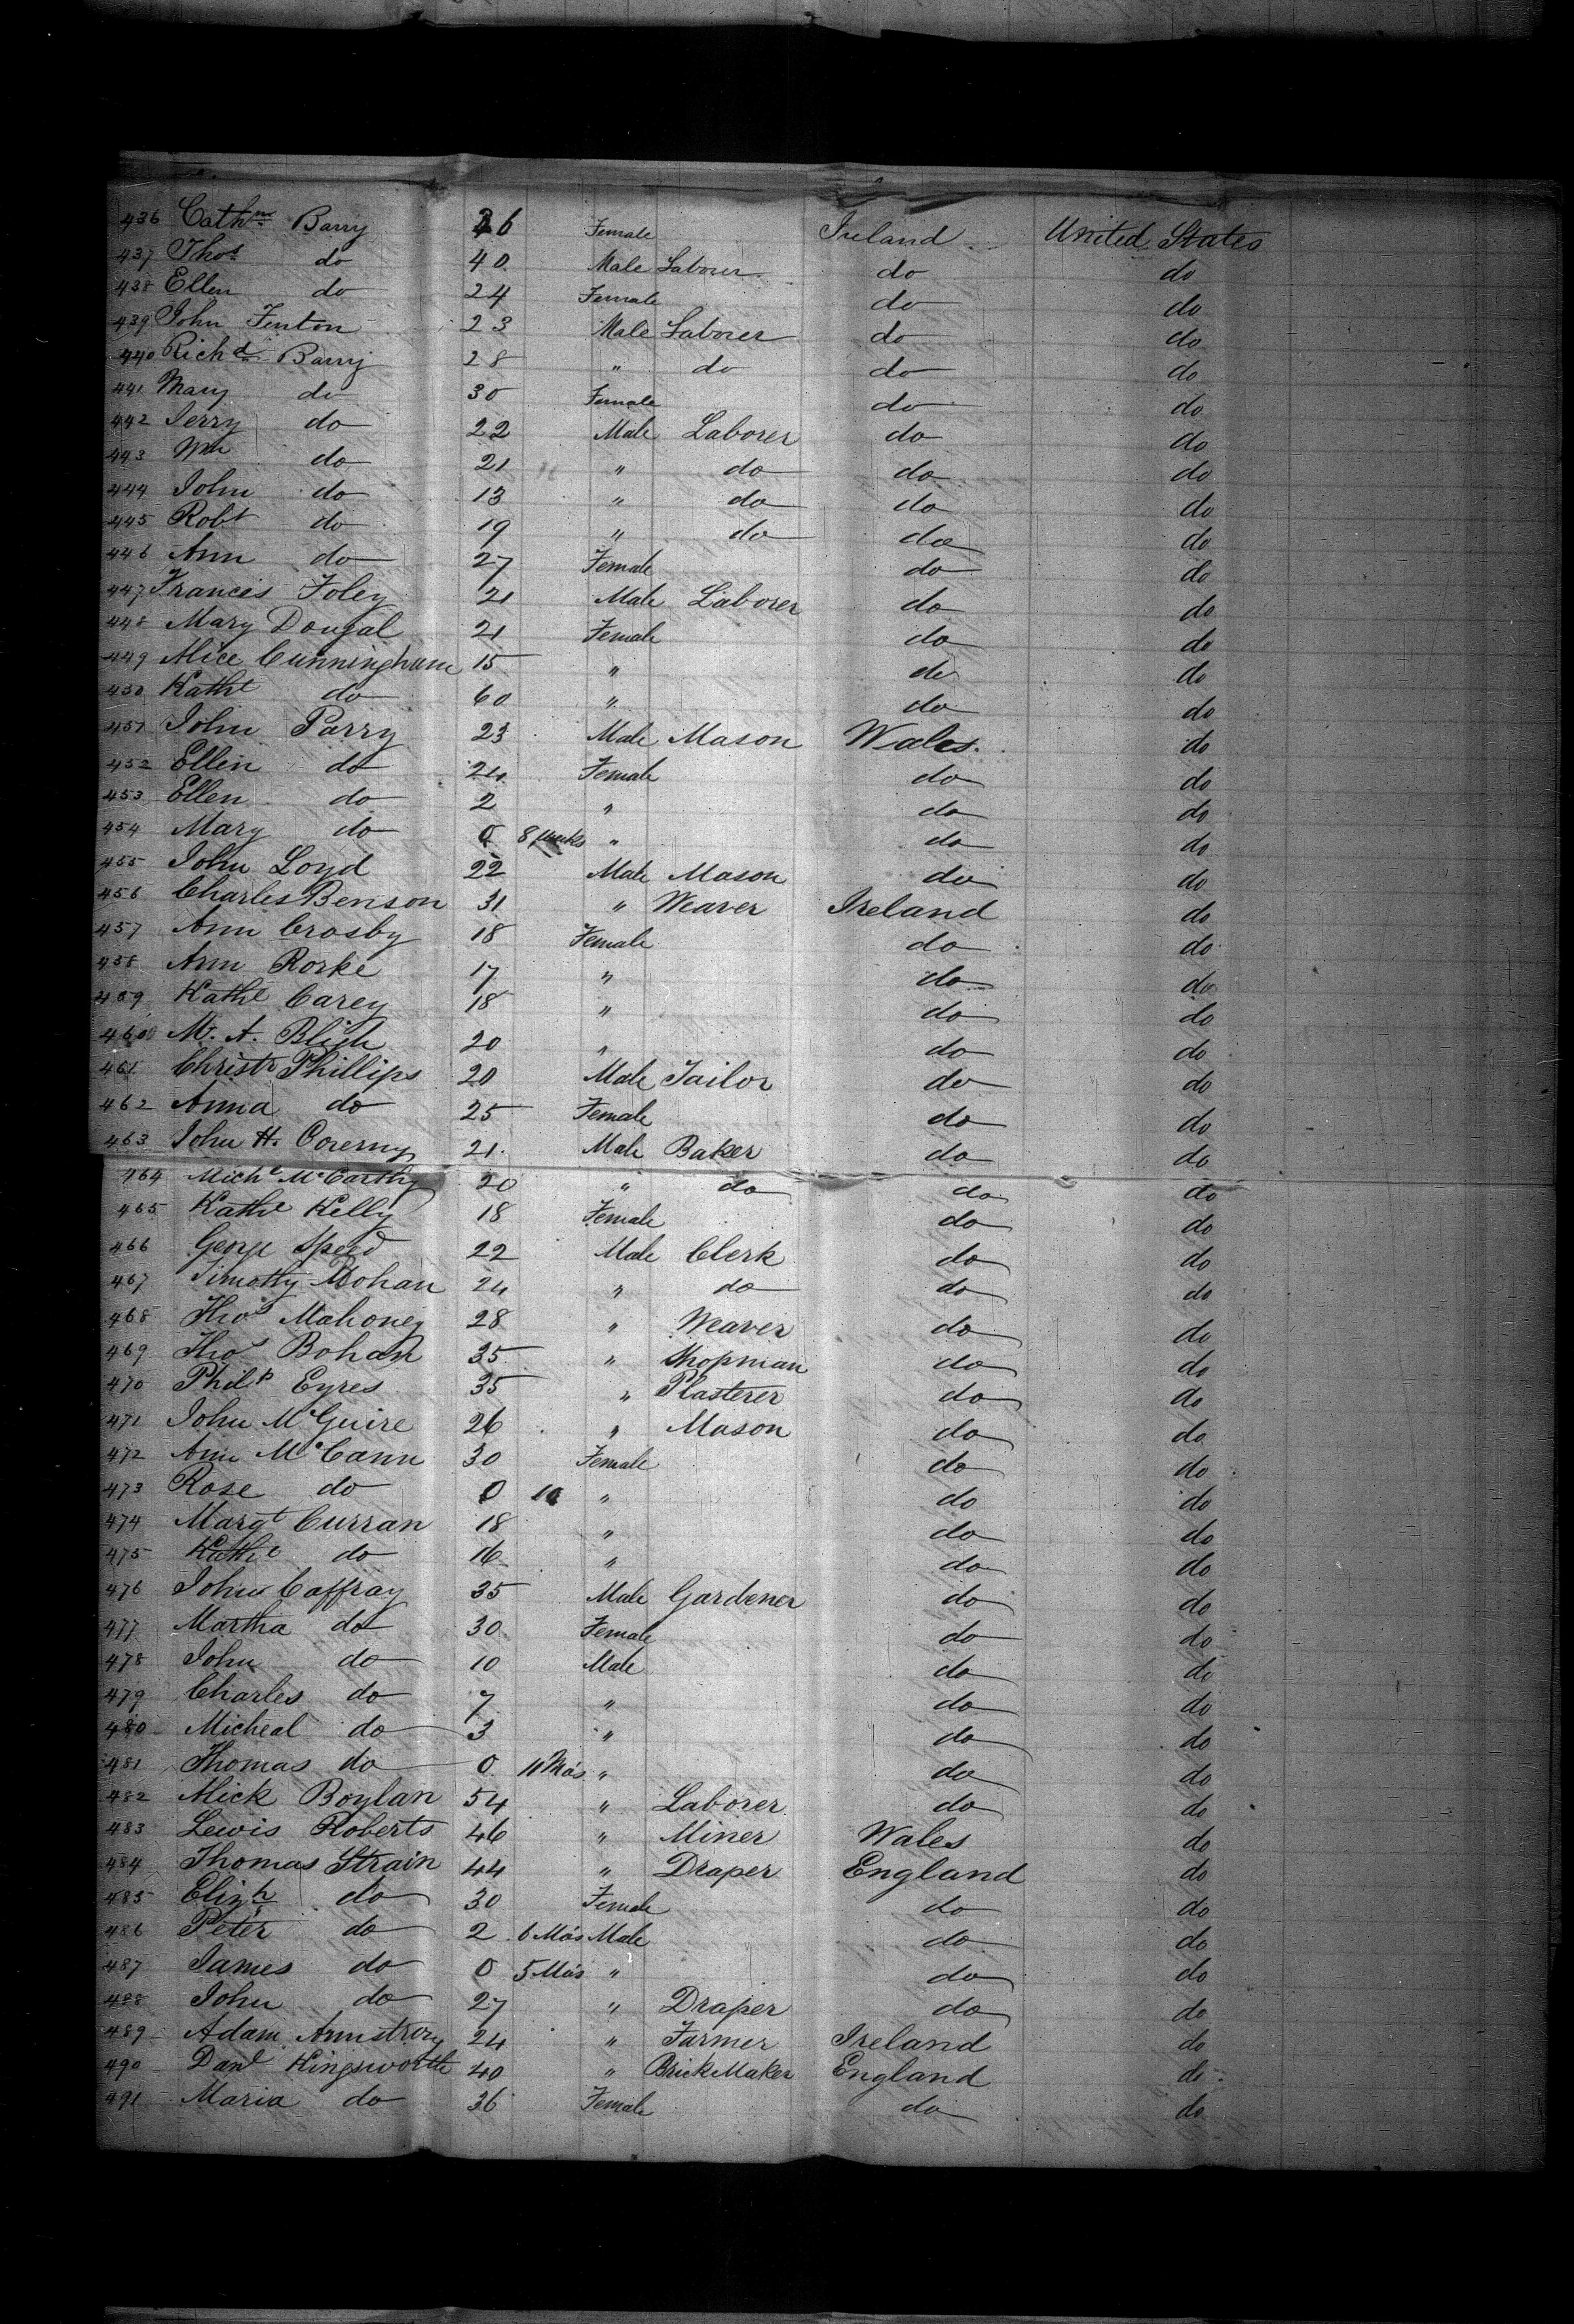 436 Cathne Barry 36 Female Ireland United States
437 Thos do 40 Male Laborer do do
438 Ellen do 24 Female do do
439 John Fenton 23 Male Laborer do do
440 Richd Barry 28 " do do do
441 Mary do 30 Female do do
442 Jerry do 22 Male Laborer do do
443 Wm do 21 " do do do
444 John do 13 " do do do
445 Robt do 19 " do do do
446 Ann do 27 Female do do
447 Francis Foley 21 Male Laborer do do
448 Mary Dougal 21 Female do do
449 Alice Cunningham 15 " do do
450 Kathe do 60 " do do
451 John Parry 23 Male Mason Wales do
452 Ellen do 24 Female do do
453 Ellen do 2 " do do
454 Mary do 0 8 weeks " do do
455 John Loyd 22 Male Mason do do
456 Charles Benson 31 " Weaver Ireland do
457 Ann Crosby 18 Female do do
458 Ann Rorke 17 " do do
459 Kathe Carey 18 " do do
460 M. A. Bligh 20 " do do
461 Christr Phillips 20 Male Tailor do do
462 Anna do 25 Female do do
463 John H. 21 Male Baker do do
464 Michl McCarthy 20 " do do do
465 Kathe Kelly 18 Female do do
466 George Speed 22 Male Clerk do do
467 Timothy Mohan 24 " do do do
468 Thos Mahoney 28 " Weaver do do
469 Thos Bohan 35 " Shopman do do
470 Philp Eyres 35 " Plasterer do do
471 John McGuire 26 " Mason do do
472 Ann McCann 30 Female do do
473 Rose do 0 10 " do do
474 Margt Curran 18 " do do
475 Kathe do 16 " do do
476 John Caffray 35 Male Gardener do do
477 Martha do 30 Female do do
478 John do 10 Male do do
479 Charles do 7 " do do
480 Micheal do 3 " do do
481 Thomas do 0 11 Mos " do do
482 Mick Boylan 54 " Laborer do do
483 Lewis Roberts 46 " Miner Wales do
484 Thomas Strain 44 " Draper England do
485 Elizh do 30 Female do do
486 Peter do 2 6 Mos Male do do
487 James do 0 5 Mos " do do
488 John do 27 " Draper do do
489 Adam Armstrong 24 " Farmer Ireland do
490 Danl Kingsworth 40 " Brick Maker England do
491 Maria do 36 Female do do